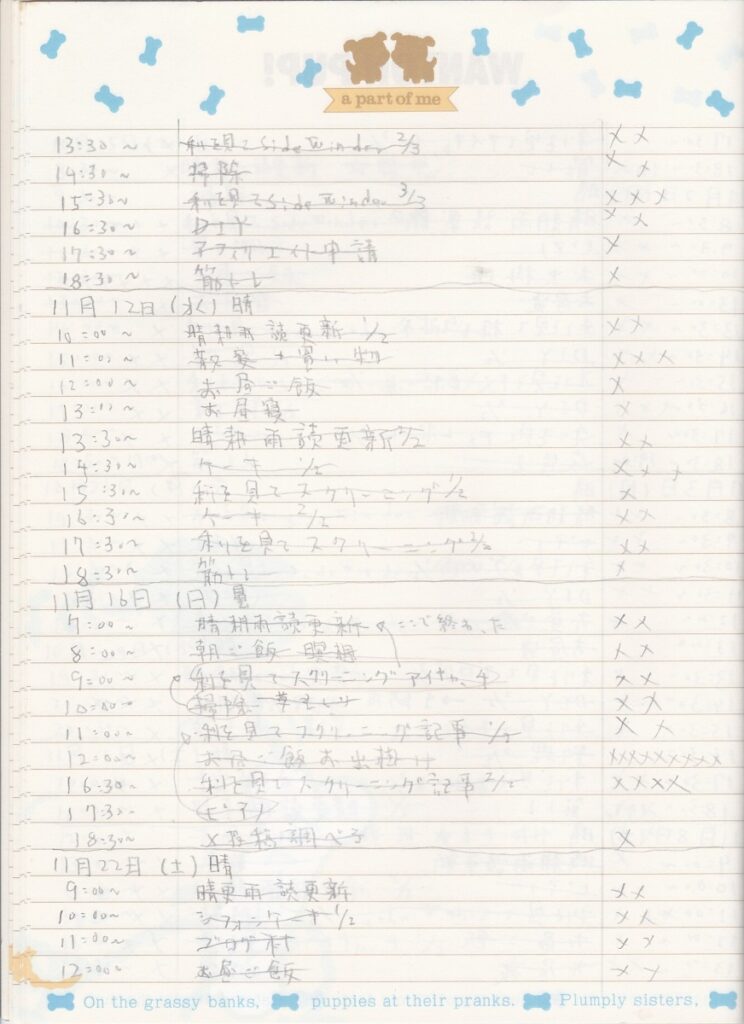 a part of me
13:30~ 利を見てSide Winder 2/3 x x
14:30~ 掃除 x x
15:30~ 利を見てSide Winder 3/3 x x x
16:30~ DIY x x
17:30~ アフィリエイト申請 x
18:30~ 筋トレ x
11月12日(水) 晴
10:00~ 晴耕雨読更新 1/2 x x
11:00~ 散髪+買い物 x x x
12:00~ お昼ご飯 x
13:00~ お昼寝 x
13:30~ 晴耕雨読更新 2/2 x x
14:30~ ケーキ 1/2 x x x
15:30~ 利を見てスクリーニング 1/2 x
16:30~ ケーキ 2/2 x x
17:30~ 利を見てスクリーニング 2/2 x x
18:30~ 筋トレ x
11月16日 (日)
7:00~ 晴耕雨読更新 ここで終わった x x
8:00~ 朝ご飯 瞑想 x x
9:00~ 利を見てスクリーニング x x
10:00~ 掃除 x x
11:00~ 利を見てスクリーニング記事 1/2 x x
12:00~ お昼ご飯お出掛け xxxxxxxxx
16:30~ 利を見てスクリーニング記事 2/2 x x x x
17:30~ ピアノ
18:30~ 調べる x
11月22日 (土) 晴
9:00~ 晴耕雨読更新 x x
10:00~ シフォンケーキ 1/2 x x
11:00~ ブログ村 x x
12:00~ お昼ご飯 x x
On the grassy banks, puppies at their pranks. Plumply sisters,